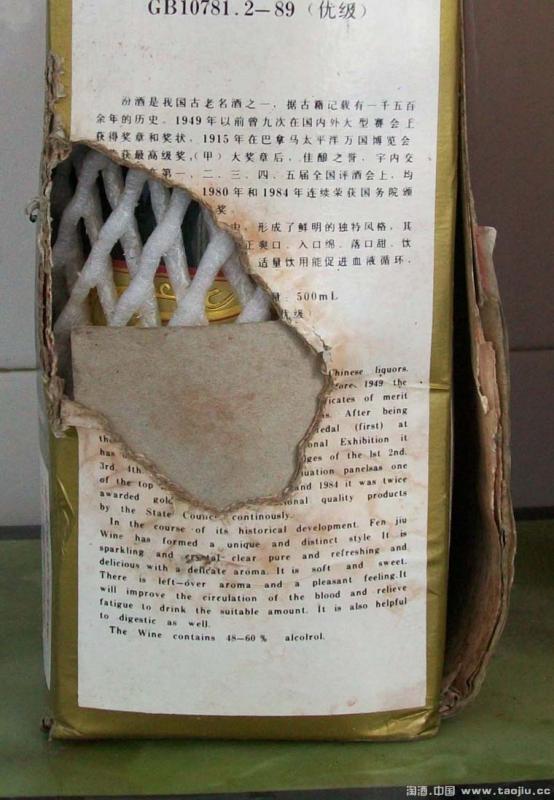 GB10781.2—89（优级）
汾酒是我国古老名酒之一，据古籍记载有一千五百
余年的历史。1949年以前曾九次在国内外大型赛会上
获得奖章和奖状，1915年在巴拿马太平洋万国博览会
获最高级奖，（甲）大奖章后，佳酿之誉，宇内交
第一、二、三、四、五届全国评酒会上，均
1980年和1984年连续荣获国务院颁
奖。
中，形成了鲜明的独特风格，其
正爽口、入口绵、落口甜、饮
适量饮用能促进血液循环，
500mL
优级）
Chinese liquors.
1949 the
of merit
After being
(first) at
Exhibition it
has of the 1st 2nd.
3rd. 4th as one
of the top and 1984 it was twice
awarded quality products
by the State continously.
In the course of its historical development. Fen jiu
Wine has formed a unique and distinct style It is
sparkling and crystal-clear pure and refreshing and
delicious with a delicate aroma. It is soft and sweet.
There is left—over aroma and a pleasant feeling.It
will improve the circulation of the blood and relieve
fatigue to drink the suitable amount. It is also helpful
to digestic as well.
The Wine contains 48—60% alcolrol.
淘酒.中国 www.taojiu.cc